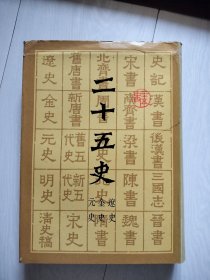 史記
漢書
後漢書
三國志
晉書
宋書
南齊書
梁書
陳書
魏書
北齊書
二十五史
遼史
金史
元史
舊唐書
新唐書
舊五代史
新五代史
宋史
遼史
金史
元史
明史
清史稿